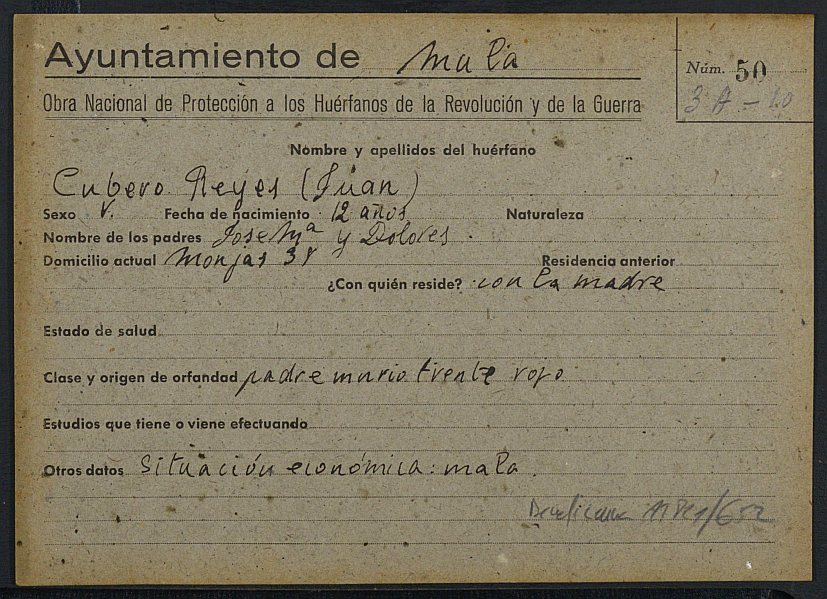 Ayuntamiento de Mula
Núm. 50
3 A - 10
Obra Nacional de Protección a los Huérfanos de la Revolución y de la Guerra
Nombre y apellidos del huérfano
Cubero Reyes (Juan)
Sexo V. Fecha de nacimiento 12 años Naturaleza
Nombre de los padres Jose Mª y Dolores
Domicilio actual Monjas 38 Residencia anterior
¿Con quién reside? con la madre
Estado de salud
Clase y origen de orfandad padre murio frente rojo
Estudios que tiene o viene efectuando
Otros datos Situación económica: mala